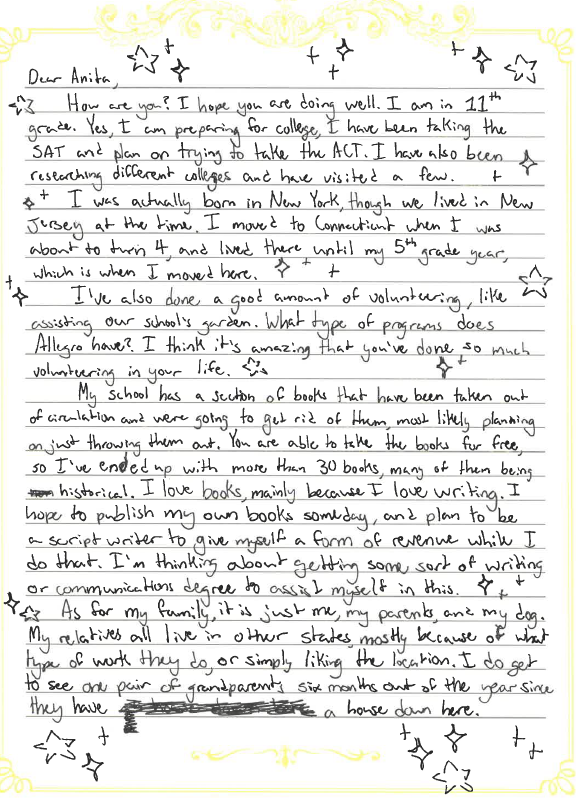 Dear Anita,
How are you? I hope you are doing well. I am in 11th
grade. Yes, I am preparing for college, I have been taking the
SAT and plan on trying to take the ACT. I have also been
researching different colleges and have visited a few.
I was actually born in New York, though we lived in New
Jersey at the time. I moved to Connecticut when I was
about to turn 4, and lived there until my 5th grade year,
which is when I moved here.
I've also done a good amount of volunteering, like
assisting our school's garden. What type of programs does
Allegro have? I think it's amazing that you've done so much
volunteering in your life.
My school has a section of books that have been taken out
of circulation and were going to get rid of them, most likely planning
on just throwing them out. You are able to take the books for free,
so I've ended up with more than 30 books, many of them being
historical. I love books, mainly because I love writing. I
hope to publish my own books someday, and plan to be
a script writer to give myself a form of revenue while I
do that. I'm thinking about getting some sort of writing
or communications degree to assist myself in this.
As for my family, it is just me, my parents, and my dog.
My relatives all live in other states, mostly because of what
type of work they do, or simply liking the location. I do get
to see one pair of grandparents six months out of the year since
they have a house down here.